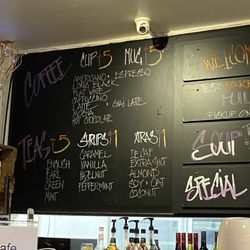 COFFEE
CUP $5 MUG $5
AMERICANO ESPRESSO
LONG BLACK
FLAT WHITE
CAPPUCCINO
LATTE CHAI LATTE
MOCHA
HOT CHOCOLATE
TEAS $5
ENGLISH
EARL
GREEN
MINT
SYRUPS $1
CARAMEL
VANILLA
HAZELNUT
PEPPERMINT
XTRAS $1
DECAF
EXTRA SHOT
ALMOND
SOY OAT
COCONUT
WELCOM
YES! TAKE
PICKUP
SOUP
SPECIAL
afe